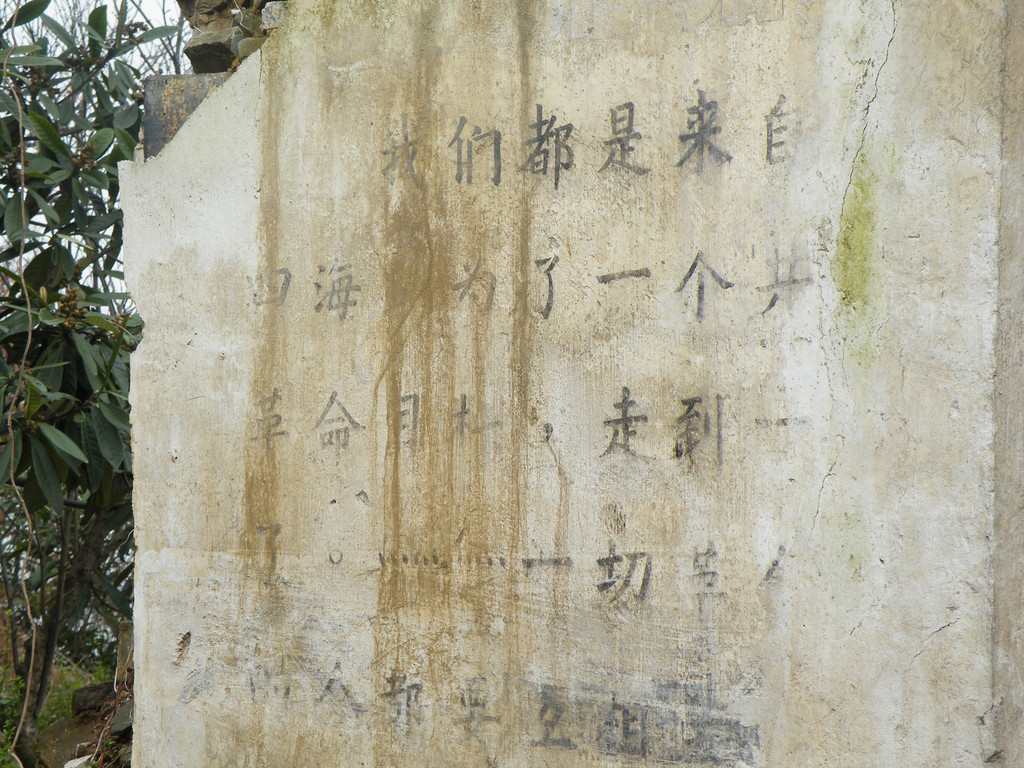 我们都是来自
四海 为了一个共
革命目标,走到一
了。……一切革
的人都要互相关